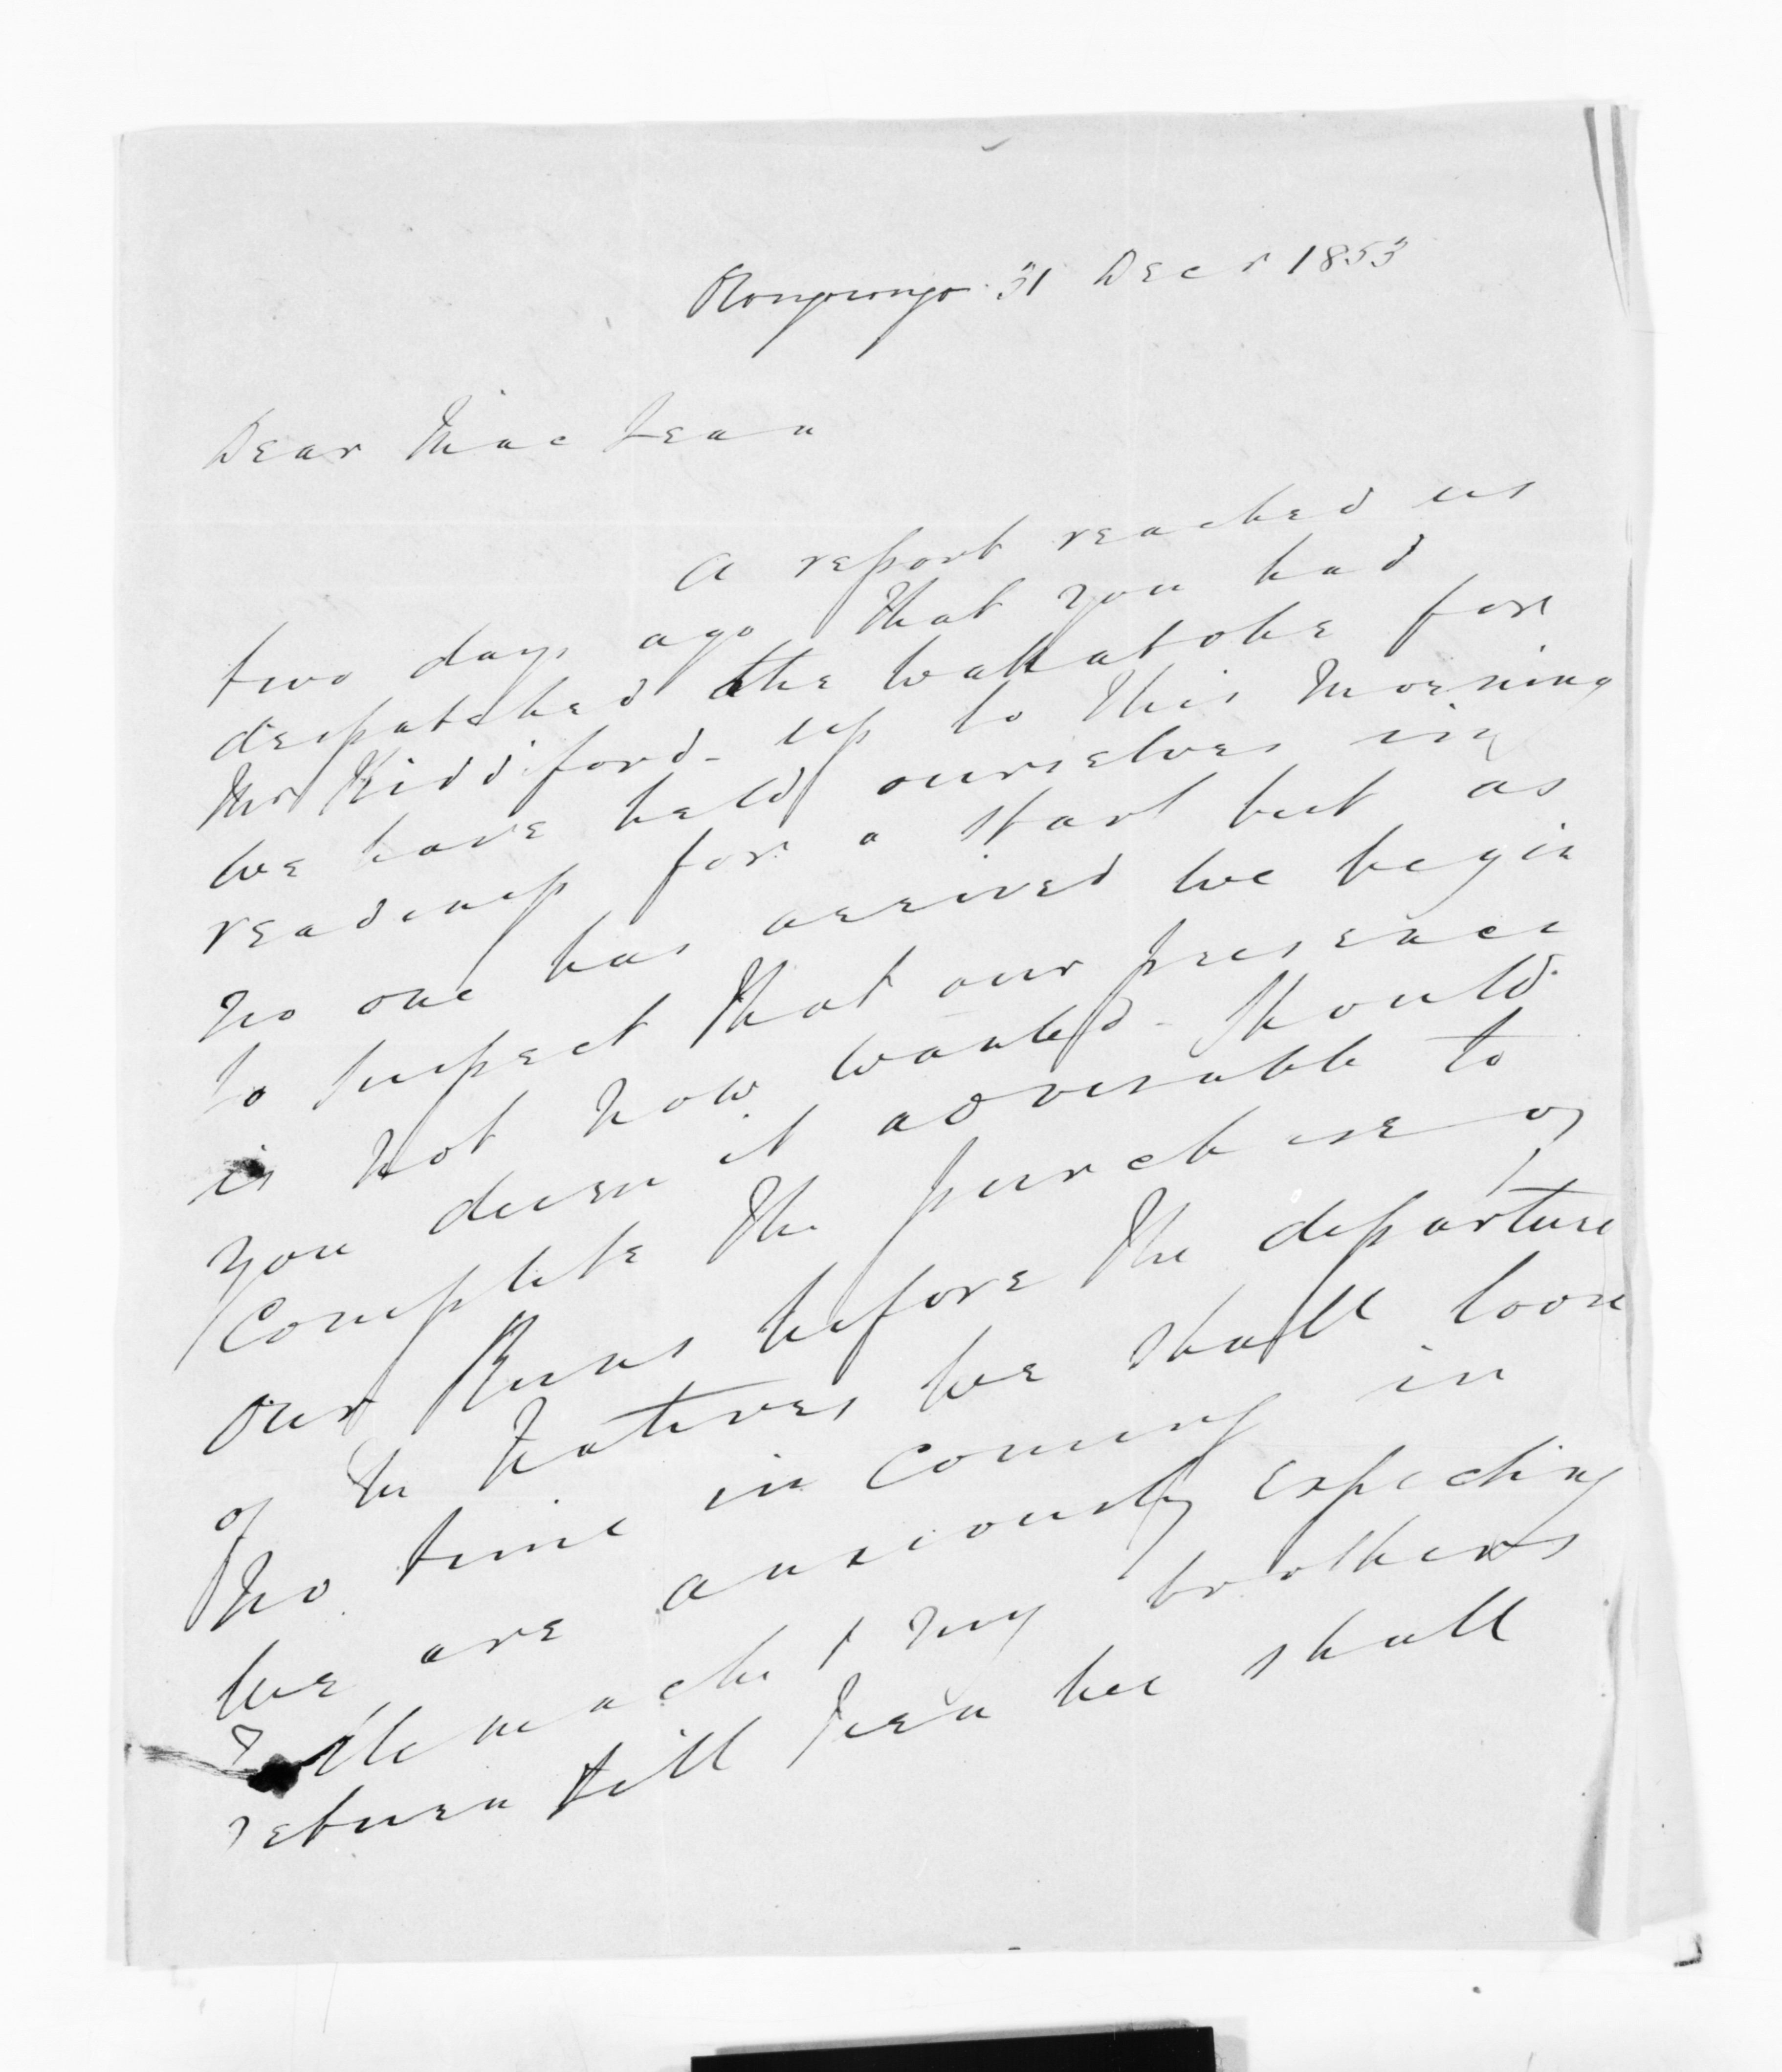 31 Decr 1853
Dear MacLean
A report reached us
two days ago that you had
despatched the Wakatobe for
Mr Kiddiford - up to this morning
we have held ourselves in
readiness for a start but as
no one has arrived we begin
to suspect that our presence
is not now wanted - Should
you deem it advisable to
complete the purchase of
our Runs before the departure
of the Natives we shall loose
no time in coming in
We are anxiously expecting
& my brothers
return till then we shall